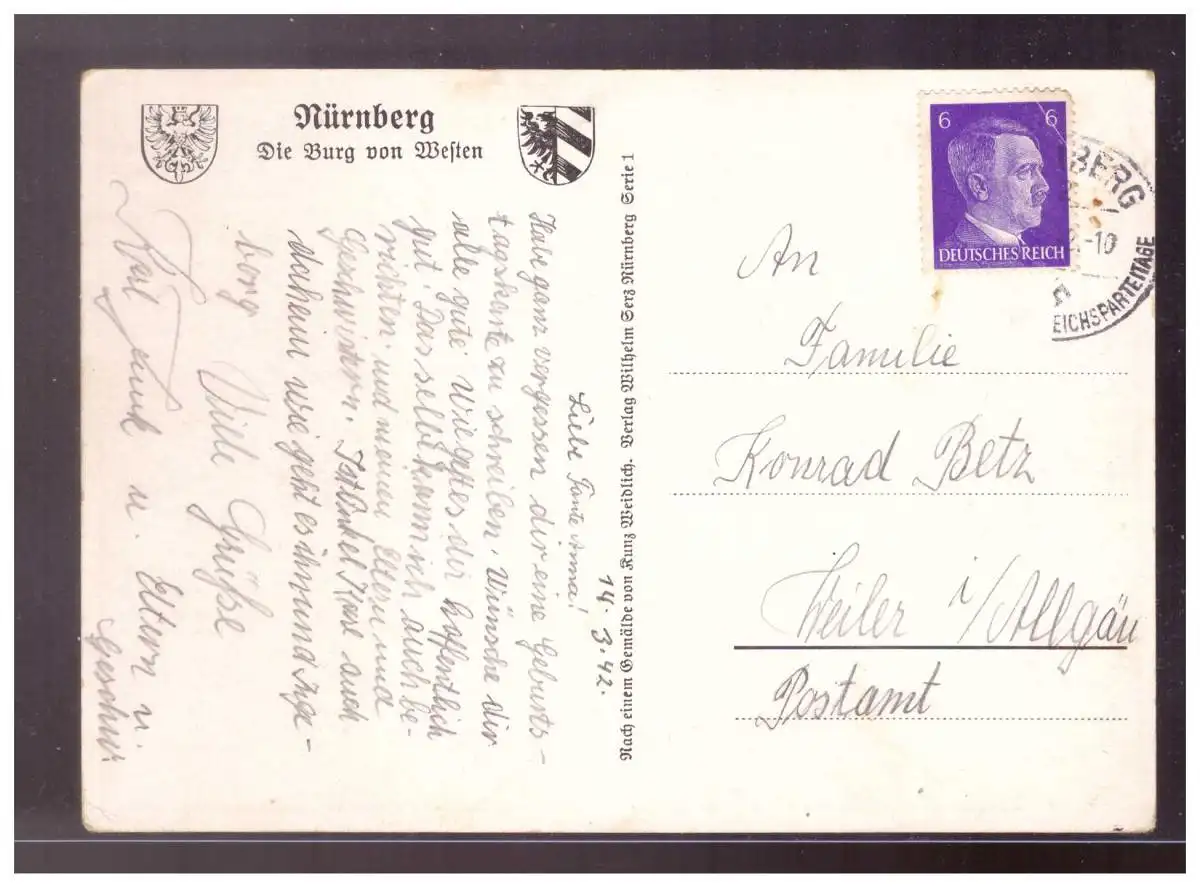 Nürnberg
Die Burg von Westen
14. 3. 42.
Liebe Tante Anna!
Habe ganz vergessen dir eine Geburts-
tagskarte zu schreiben. Wünsche dir
alle gute. Wie gehtes dir hoffentlich
gut. Das selbe kann ich auch be-
richten und meinen Eltern und
Geschwistern. Ist Onkel auch
daheim wie geht es ihm und Inge-
borg
Viele Grüße
Karl u. Eltern u.
Geschw.
Nach einem Gemälde von Kunz Weidlich. Verlag Wilhelm Serz Nürnberg Serie 1
6 6
DEUTSCHES REICH
BERG
-10
EICHSPARTEITAGE
An
Familie
Konrad Betz
Weiler i/Allgäu
Postamt